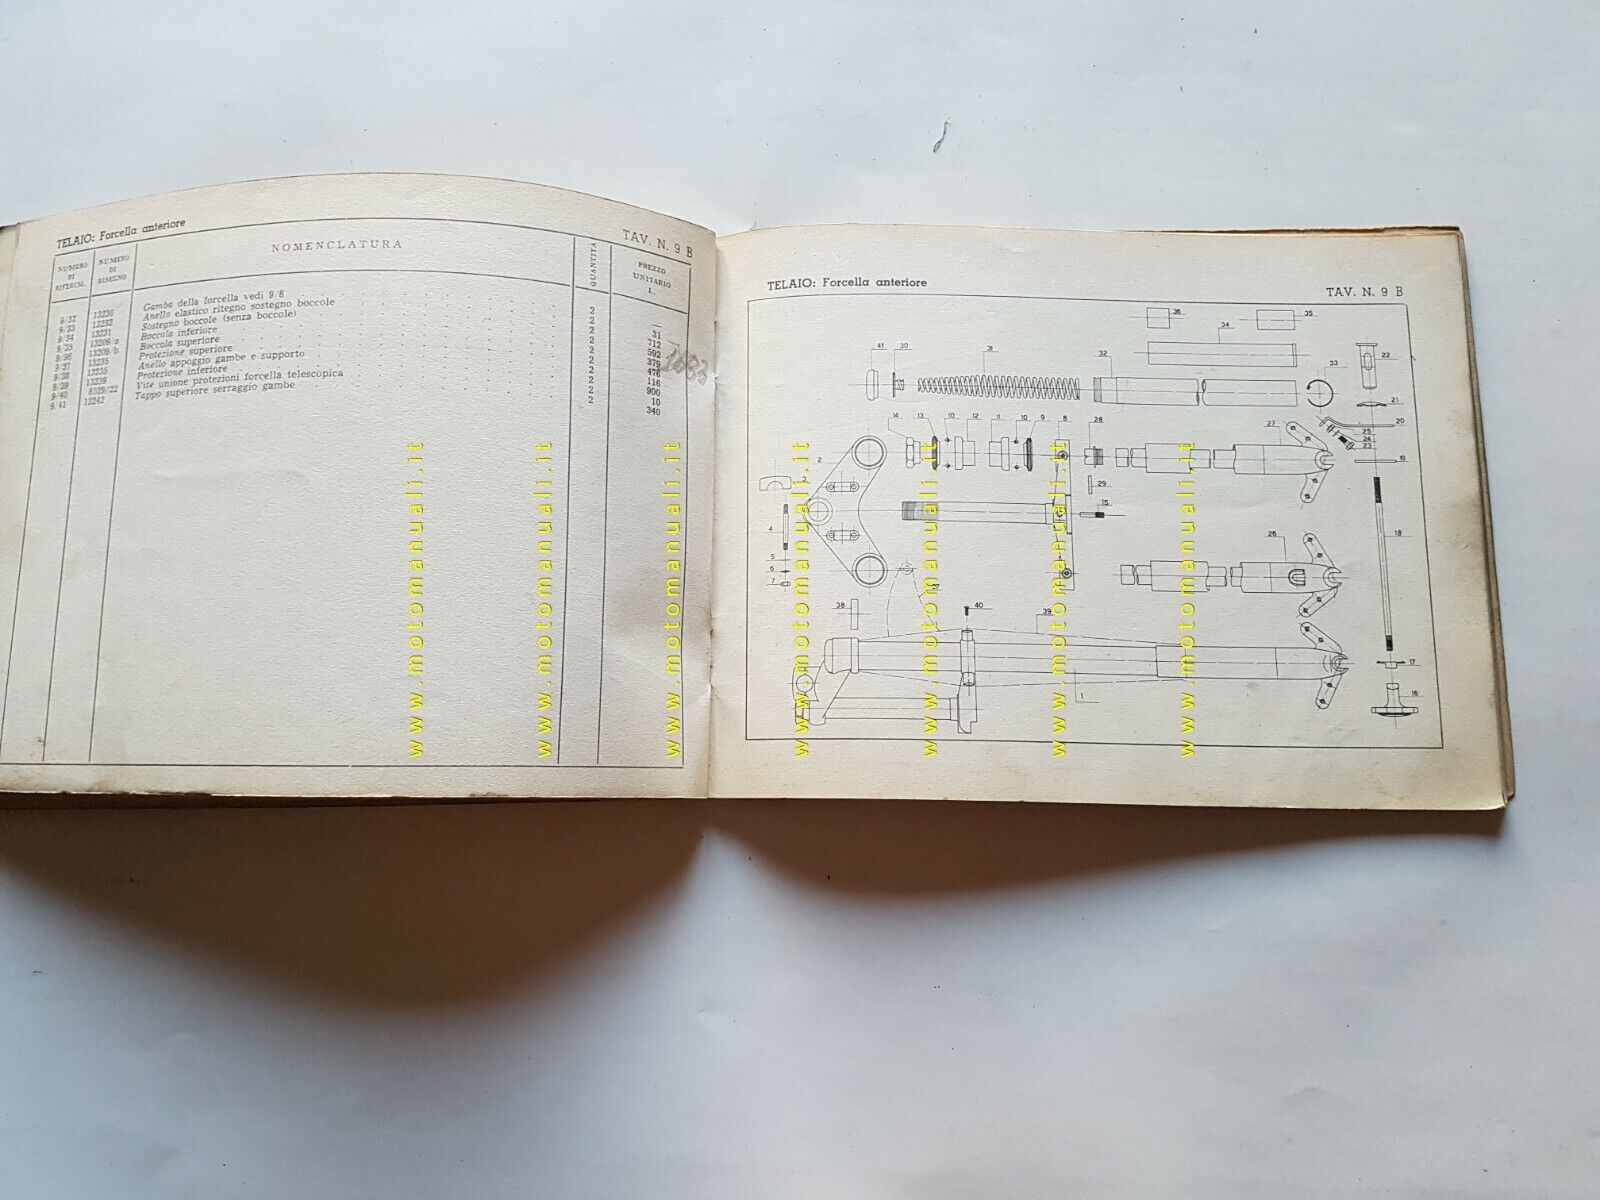 TELAIO: Forcella anteriore
TAV. N. 9 B
NUMERO DI RIFERIM.
NUMERO DI DISEGNO
NOMENCLATURA
QUANTITÀ
PREZZO UNITARIO L.
9/32 Gamba della forcella vedi 9/8 2 —
9/33 Anello elastico ritegno sostegno boccole 2 31
9/34 Sostegno boccole (senza boccole) 2 712
9/35 13209/a Boccola inferiore 2 592
9/36 13209/b Boccola superiore 2 379
9/37 13235 Protezione superiore 2 476
9/38 Anello appoggio gambe e supporto 2 116
9/39 13239 Protezione inferiore 2 900
9/40 8529/22 Vite unione protezioni forcella telescopica 2 10
9/41 13242 Tappo superiore serraggio gambe 2 340
www.motomanuali.it
www.motomanuali.it
www.motomanuali.it
TELAIO: Forcella anteriore
TAV. N. 9 B
36 35
34
41 30 31 32 33 22
21
14 13 10 12 11 10 9 8 28 27 20
25
24
23
2 19
3 29
15
4 18
5 26
6
7
37
38 40 39
17
1 16
www.motomanuali.it
www.motomanuali.it
www.motomanuali.it
www.motomanuali.it